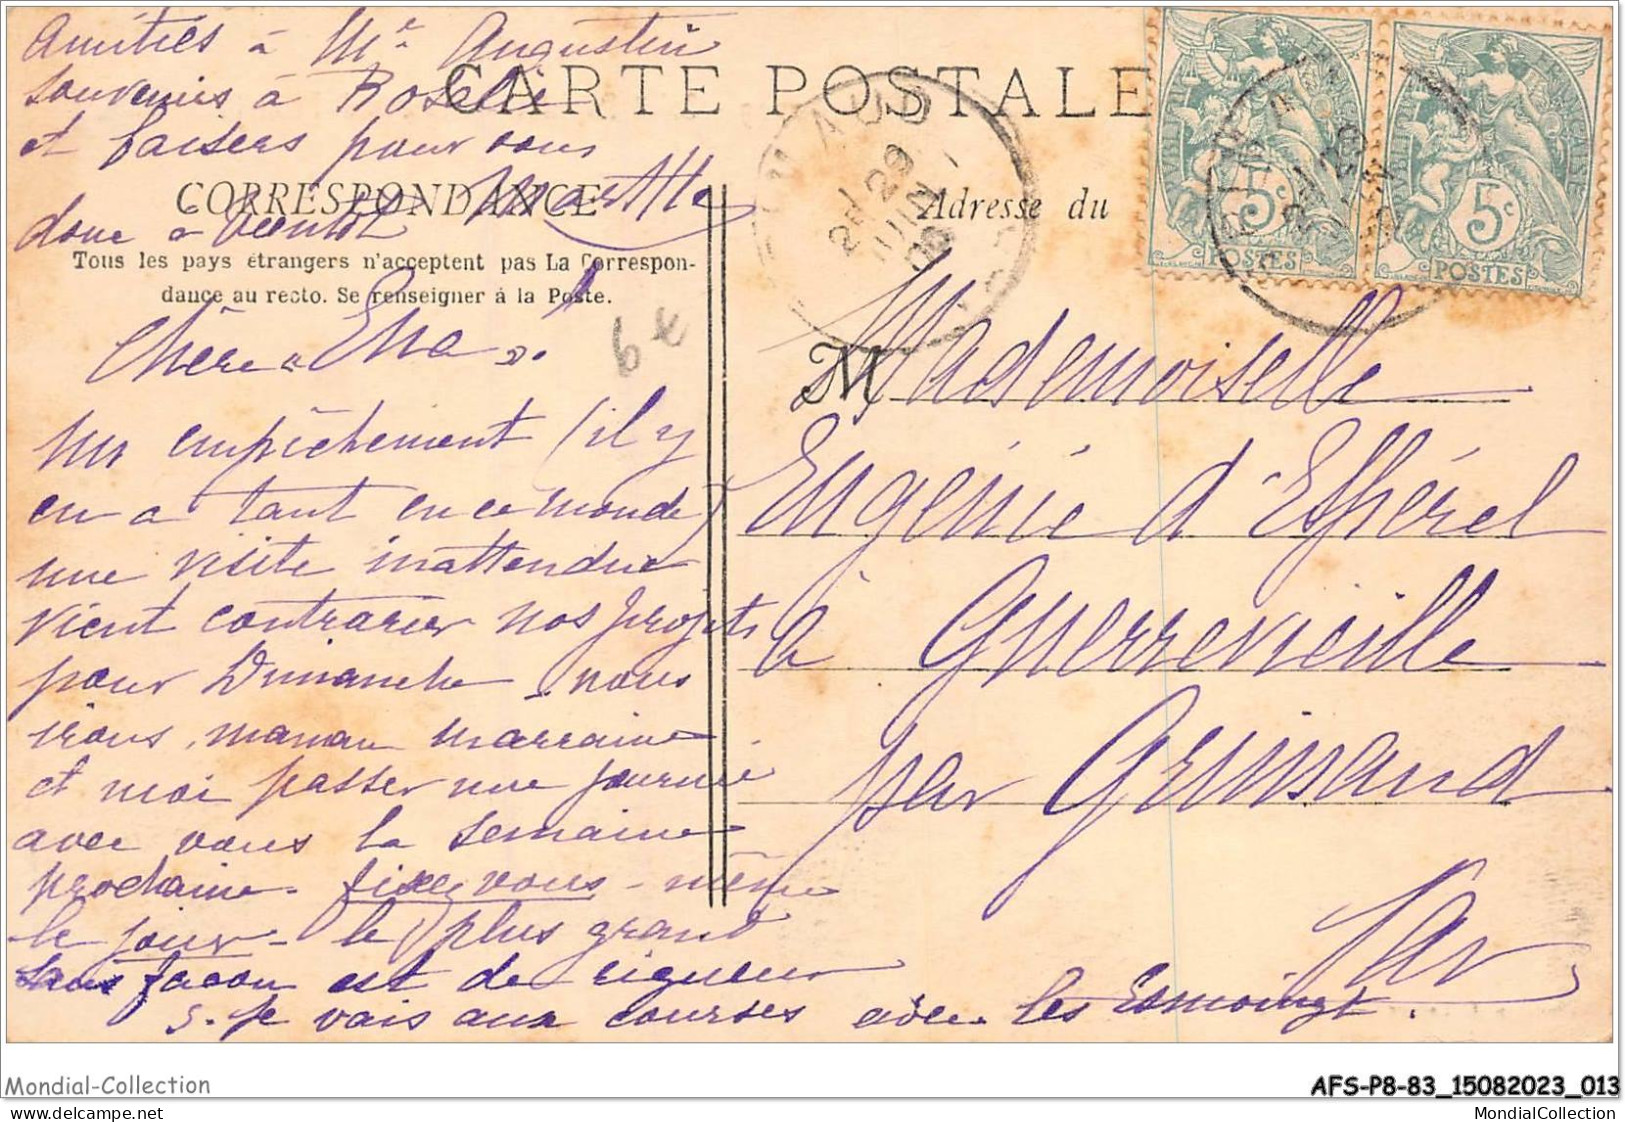 Amitiés à Mr Augustin
souvenirs à Roselie
et baisers pour vous
Marthe
donc à bientôt
CARTE POSTALE
CORRESPONDANCE
Tous les pays étrangers n'acceptent pas La Correspon-
dance au recto. Se renseigner à la Poste.
Adresse du
29
JUIN
RÉPUBLIQUE FRANÇAISE
5c
POSTES
RÉPUBLIQUE FRANÇAISE
5c
POSTES
6 €
Chère « Ena ».
Un empêchement (il y
en a tant en ce monde)
une visite inattendue
vient contrarier nos projets
pour Dimanche. nous
irons, maman marraine
et moi passer une journée
avec vous la semaine
prochaine. fixez vous-même
le jour - le plus grand
sans façon est de rigueur
S. Je vais aux courses avec les
M Mademoiselle
Eugénie d'Espérel
à Guerrevieille
par Grimaud
Var
Mondial-Collection
AFS-P8-83_15082023_013
delcampe.net
MondialCollection